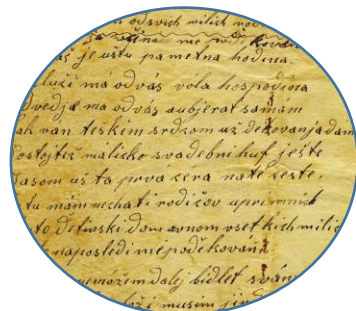 od svich milich
me podekovan
je uštu pametna hodina.
má od vás vola hospodina
ma od vas aubjerat samám
ak nan teskim srdzom uš dekovanja dam
ostojtež málicko svadebni huf ješte
časom uš ta prva cera nate ceste.
tu mám nechati rodičov uprimnich
to detinski dom avnom všetkich milic
naposledi mé podekovani
nemóžim dalej bidlet s vám
musim